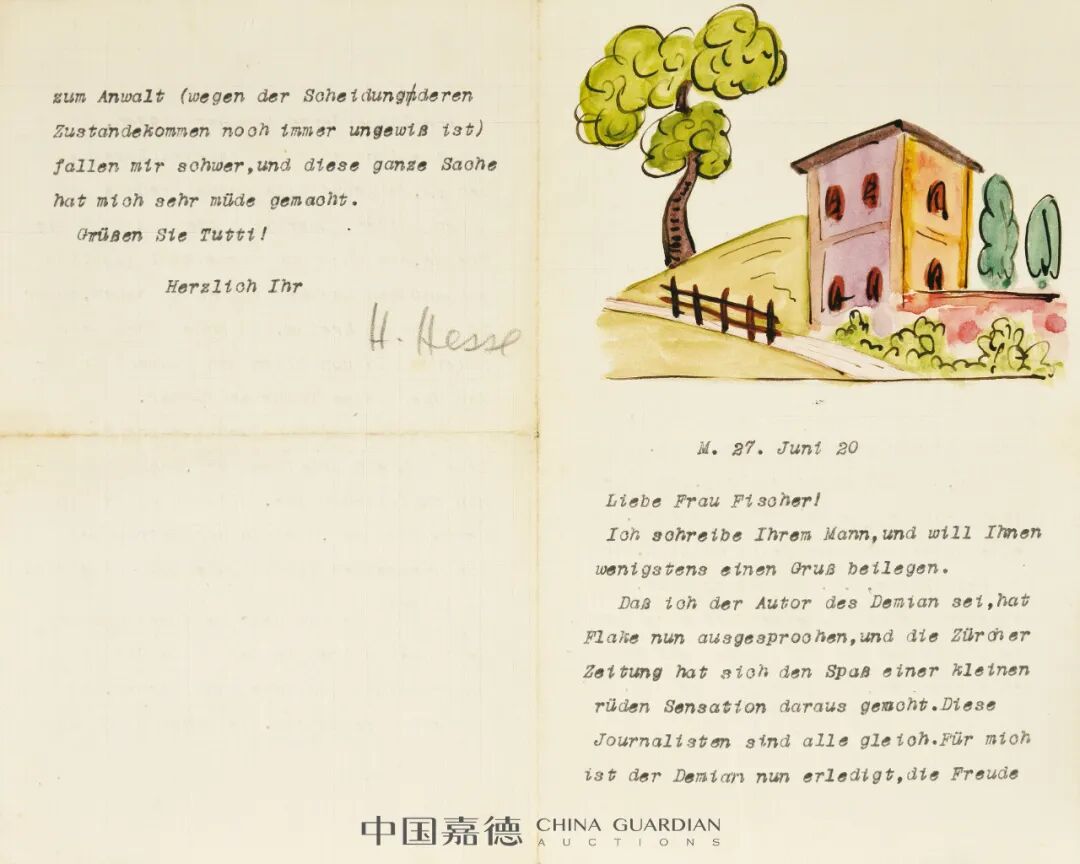 zum Anwalt (wegen der Scheidung,deren
Zustandekommen noch immer ungewiß ist)
fallen mir schwer,und diese ganze Sache
hat mich sehr müde gemacht.
Grüßen Sie Tutti!
Herzlich Ihr
H. Hesse
M. 27. Juni 20
Liebe Frau Fischer!
Ich schreibe Ihrem Mann,und will Ihnen
wenigstens einen Gruß beilegen.
Daß ich der Autor des Demian sei,hat
Flake nun ausgesprochen,und die Zürcher
Zeitung hat sich den Spaß einer kleinen
rüden Sensation daraus gemacht.Diese
Journalisten sind alle gleich.Für mich
ist der Demian nun erledigt,die Freude
中国嘉德 CHINA GUARDIAN
AUCTIONS